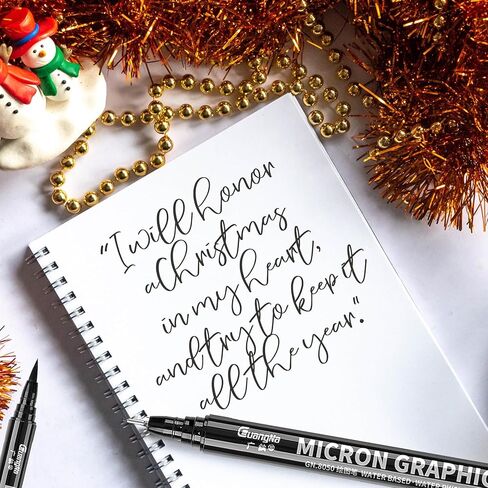 "I will honor
Christmas
in my heart,
and try to keep it
all the year."
GuangNa
广纳®
MICRON GRAPHIC
GN.8050 绘图笔 WATER BASED